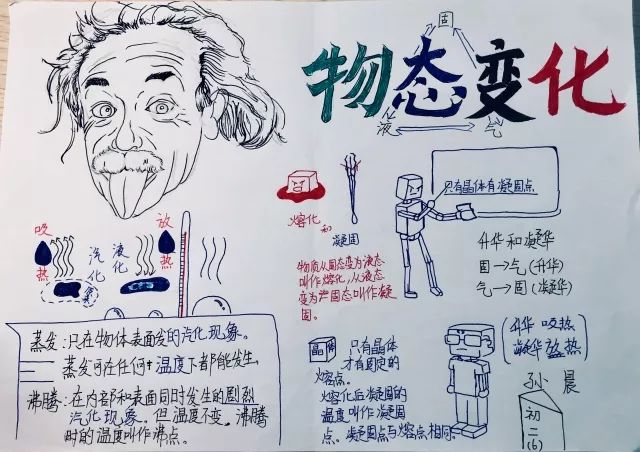 物态变化
固
液
气
吸
热
汽
化
液
化
放
热
熔化
和
凝固
物质从固态变为液态
叫作熔化,从液态
变为固态叫作凝
固。
只有晶体有凝固点
升华和凝华
固→气(升华)
气→固(凝华)
(升华 吸热
凝华 放热)
蒸发:只在物体表面发的汽化现象。
蒸发可在任何温度下都能发生。
沸腾:在内部和表面同时发生的剧烈
汽化现象。但温度不变。沸腾
时的温度叫作沸点。
晶体
只有晶体
才有固定的
熔点。
熔化后凝固的
温度叫作凝固
点。凝固点与熔点相同。
孙晨
初
二
(6)